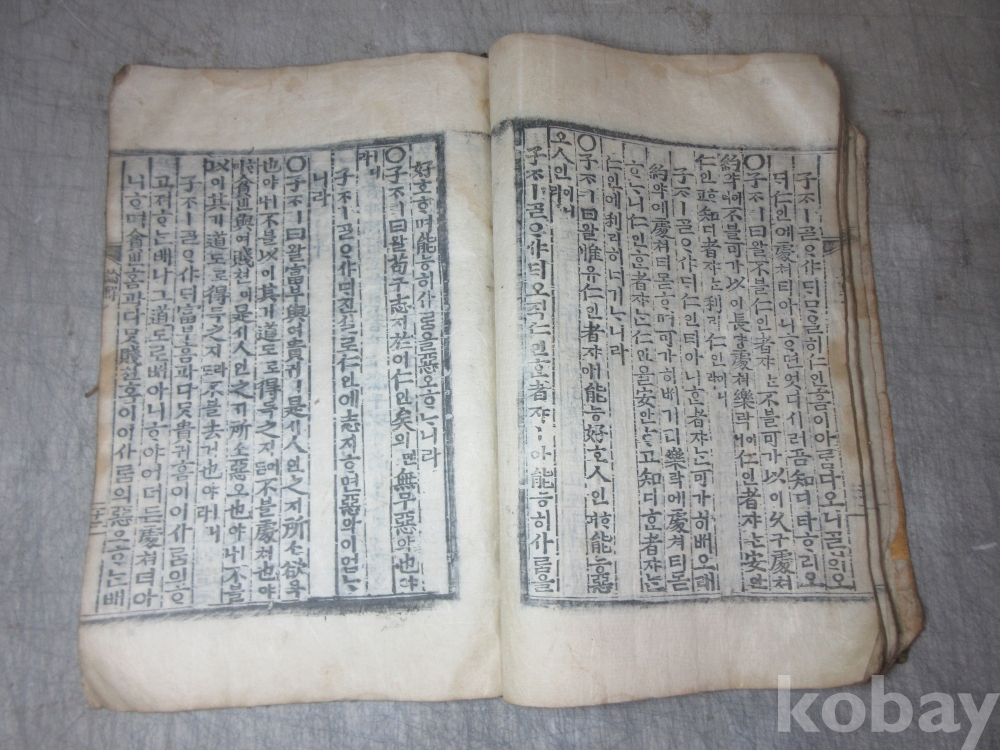 子ᄌᆞㅣᄀᆞᆯᄋᆞ샤ᄃᆡᄆᆞᄋᆞᆯ히仁인홈이아ᄅᆞᆷ다오니ᄀᆞᆯᄒᆡ오
ᄃᆡ仁인애處쳐티아니ᄒᆞ면엇디시러곰知디타ᄒᆞ리오
○子ᄌᆞㅣ曰왈不블仁인者쟈ᄂᆞᆫ不블可가以이久구處쳐
約약이며不블可가以이長댱處쳐樂락이니仁인者쟈ᄂᆞᆫ安안
仁인ᄒᆞ고知디者쟈ᄂᆞᆫ利리仁인이니라
子ᄌᆞㅣᄀᆞᆯᄋᆞ샤ᄃᆡ仁인티아니ᄒᆞᆫ者쟈ᄂᆞᆫ可가히ᄡᅥ오래
約약애處쳐티몯ᄒᆞ며可가히ᄡᅥ기리樂락애處쳐티몯
ᄒᆞᄂᆞ니仁인ᄒᆞᆫ者쟈ᄂᆞᆫ仁인을安안ᄒᆞ고知디ᄒᆞᆫ者쟈ᄂᆞᆫ
仁인에利리히너기ᄂᆞ니라
○子ᄌᆞㅣ曰왈惟유仁인者쟈ㅣ아能능好호人인ᄒᆞ며能능惡
오人인이니라
子ᄌᆞㅣᄀᆞᆯᄋᆞ샤ᄃᆡ오직仁인ᄒᆞᆫ者쟈ㅣ아能능히사ᄅᆞᆷ을
好호ᄒᆞ며能능히사ᄅᆞᆷ을惡오ᄒᆞᄂᆞ니라
○子ᄌᆞㅣ曰왈苟구志지於어仁인矣의면無무惡악也야
ㅣ니라
子ᄌᆞㅣᄀᆞᆯᄋᆞ샤ᄃᆡ진실로仁인에志지ᄒᆞ면惡악이업ᄂᆞ
니라
○子ᄌᆞㅣ曰왈富부與여貴귀ㅣ是시人인之지所소欲욕
也야ㅣ나不블以이其기道도로得득之지어든不블處쳐也야
ᄒᆞ며貧빈與여賤쳔이是시人인之지所소惡오也야ㅣ나不블
以이其기道도로得득之지라도不블去거也야ㅣ니라
子ᄌᆞㅣᄀᆞᆯᄋᆞ샤ᄃᆡ富부홈과다ᄆᆞᆺ貴귀홈이이사ᄅᆞᆷ의ᄒᆞ
고져ᄒᆞᄂᆞᆫ배나그道도로ᄡᅥ아니ᄒᆞ야어더든處쳐티아
니ᄒᆞ며貧빈홈과다ᄆᆞᆺ賤쳔홈이이사ᄅᆞᆷ의惡오ᄒᆞᄂᆞᆫ배
kobay